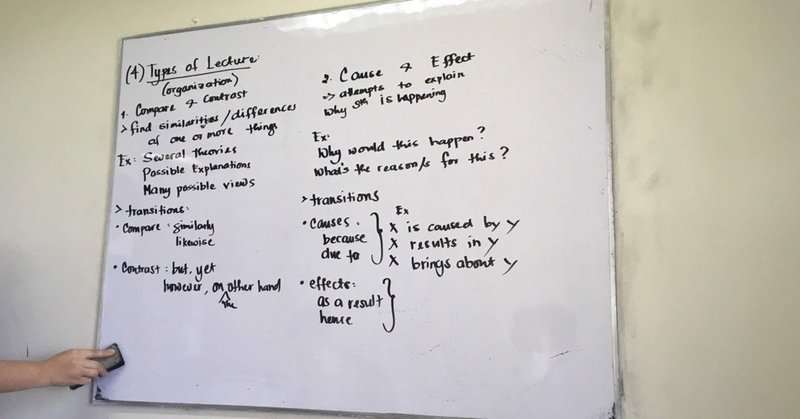 (4) Types of Lecture:
(organization)
1. Compare & Contrast
> find similarities/differences
of one or more things
Ex: Several theories
Possible Explanations
Many possible views
> transitions:
• Compare: similarly
likewise
• Contrast: but, yet
however, on the other hand
2. Cause & Effect
=> attempts to explain
why sth is happening
Ex:
Why would this happen?
What's the reason/s for this?
> transitions
• causes.
because
due to
Ex
X is caused by y
X results in y
X brings about y
• effects:
as a result
hence